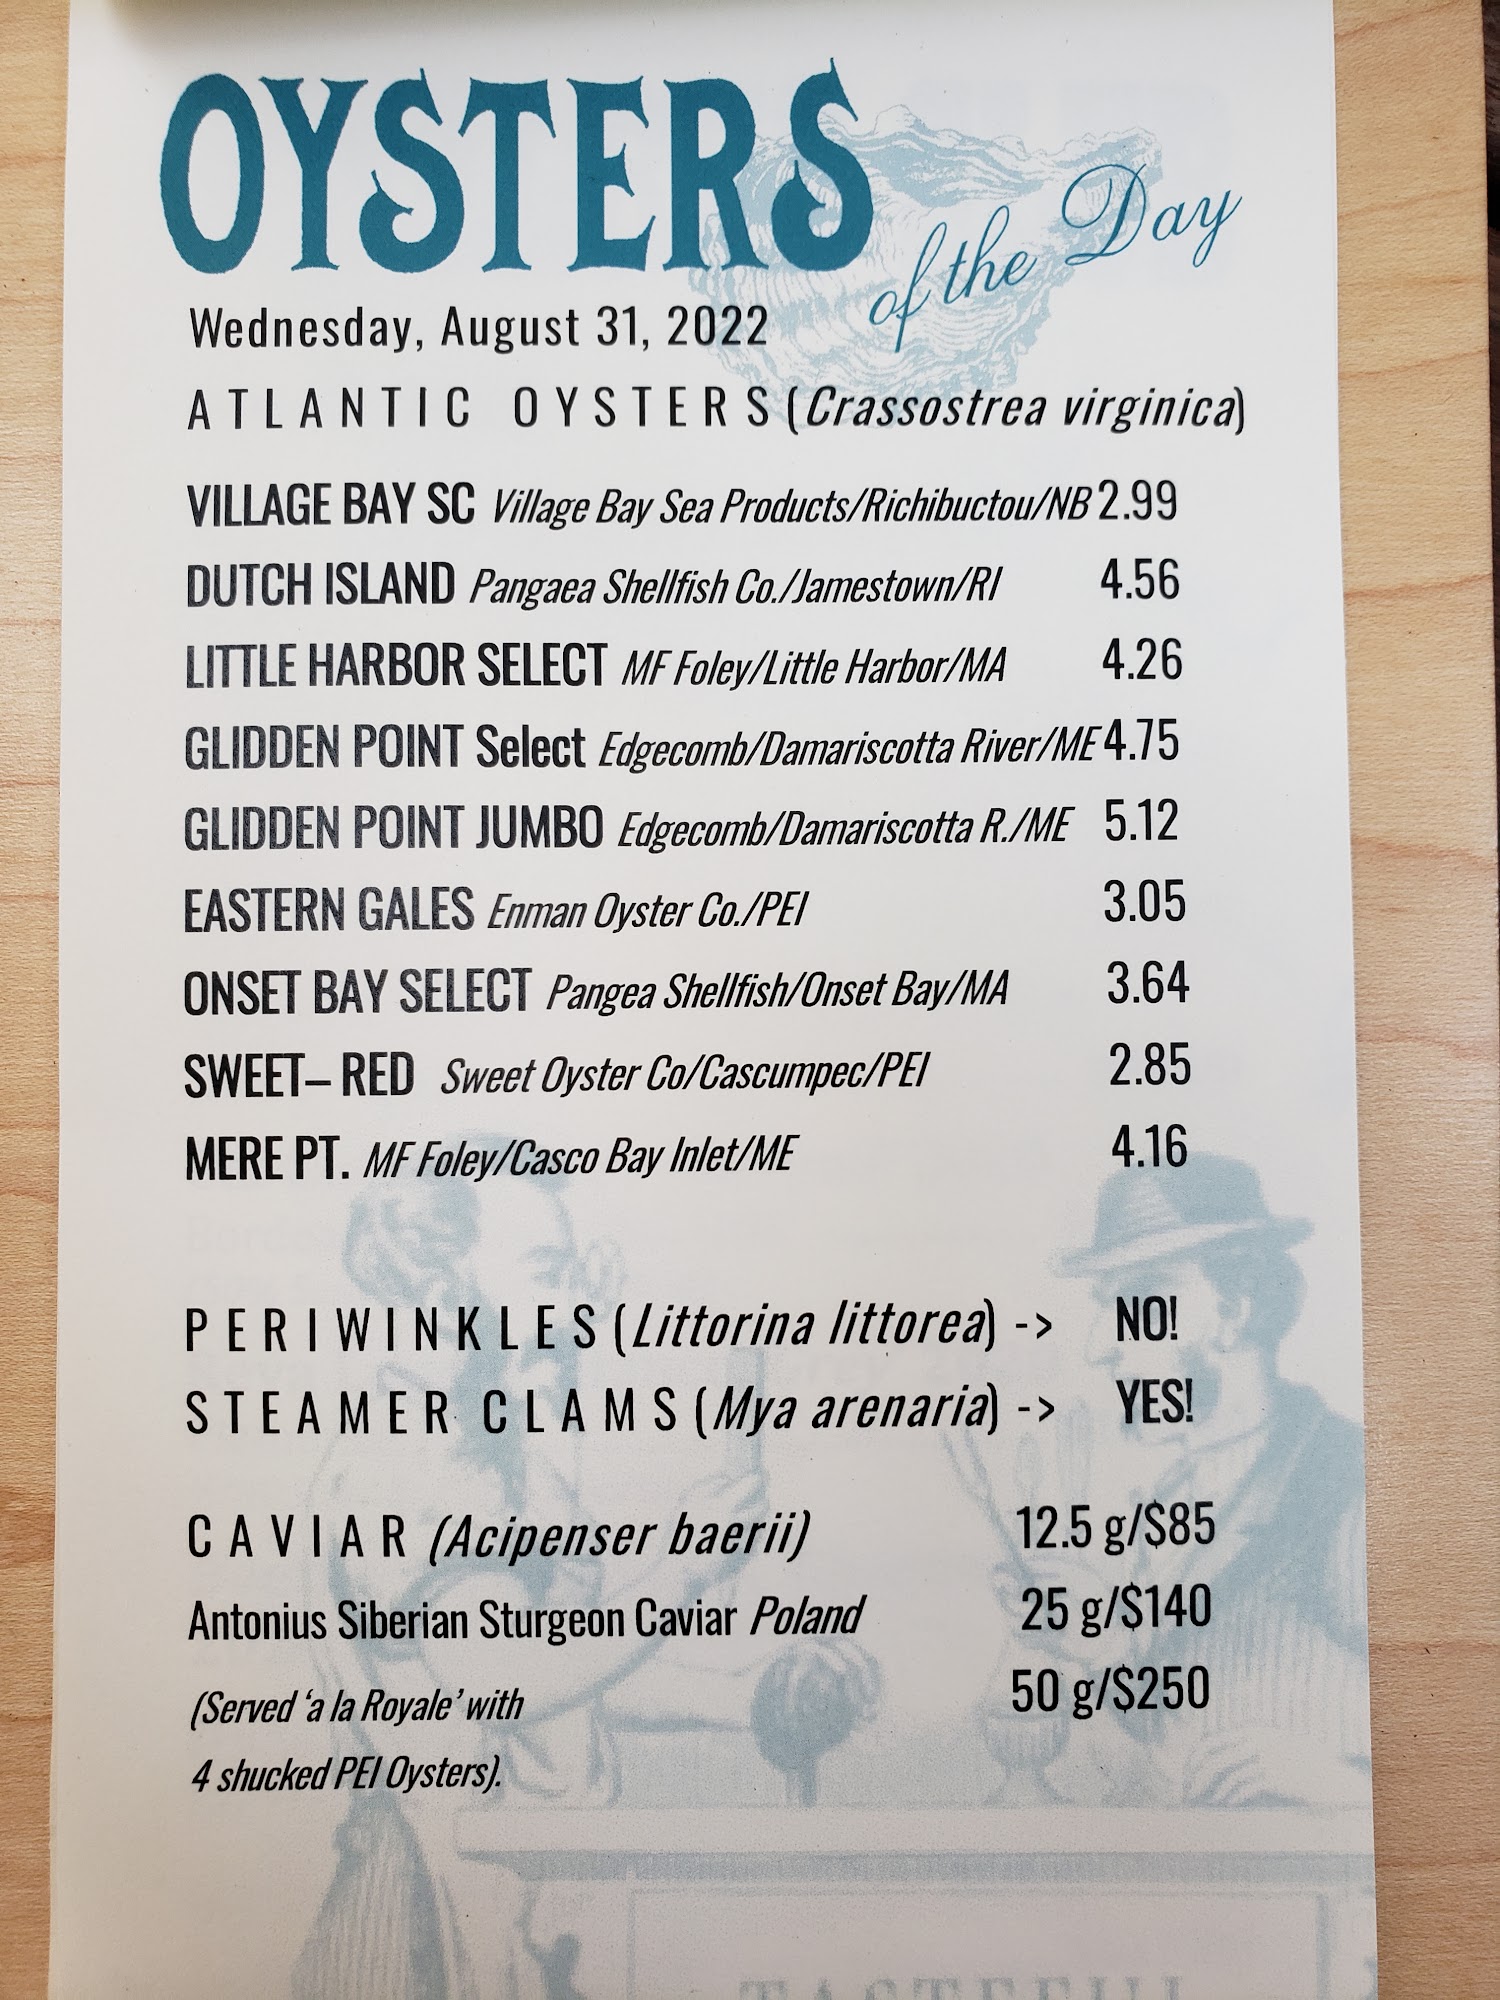 OYSTERS of the Day
Wednesday, August 31, 2022
ATLANTIC OYSTERS (Crassostrea virginica)
VILLAGE BAY SC Village Bay Sea Products/Richibuctou/NB 2.99
DUTCH ISLAND Pangaea Shellfish Co./Jamestown/RI 4.56
LITTLE HARBOR SELECT MF Foley/Little Harbor/MA 4.26
GLIDDEN POINT Select Edgecomb/Damariscotta River/ME 4.75
GLIDDEN POINT JUMBO Edgecomb/Damariscotta R./ME 5.12
EASTERN GALES Enman Oyster Co./PEI 3.05
ONSET BAY SELECT Pangea Shellfish/Onset Bay/MA 3.64
SWEET– RED Sweet Oyster Co/Cascumpec/PEI 2.85
MERE PT. MF Foley/Casco Bay Inlet/ME 4.16
PERIWINKLES (Littorina littorea) -> NO!
STEAMER CLAMS (Mya arenaria) -> YES!
CAVIAR (Acipenser baerii) 12.5 g/$85
Antonius Siberian Sturgeon Caviar Poland 25 g/$140
50 g/$250
(Served ‘a la Royale’ with
4 shucked PEI Oysters).